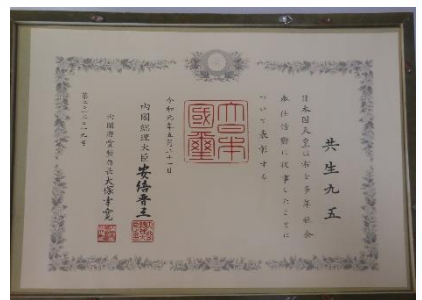 共生九五
日本国天皇は 多年社会
奉仕活動に従事したことに
ついて表彰する
大日本
國璽
令和元年五月 十一日
内閣総理大臣 安倍晋三
内閣府賞勲局長 大塚幸寛